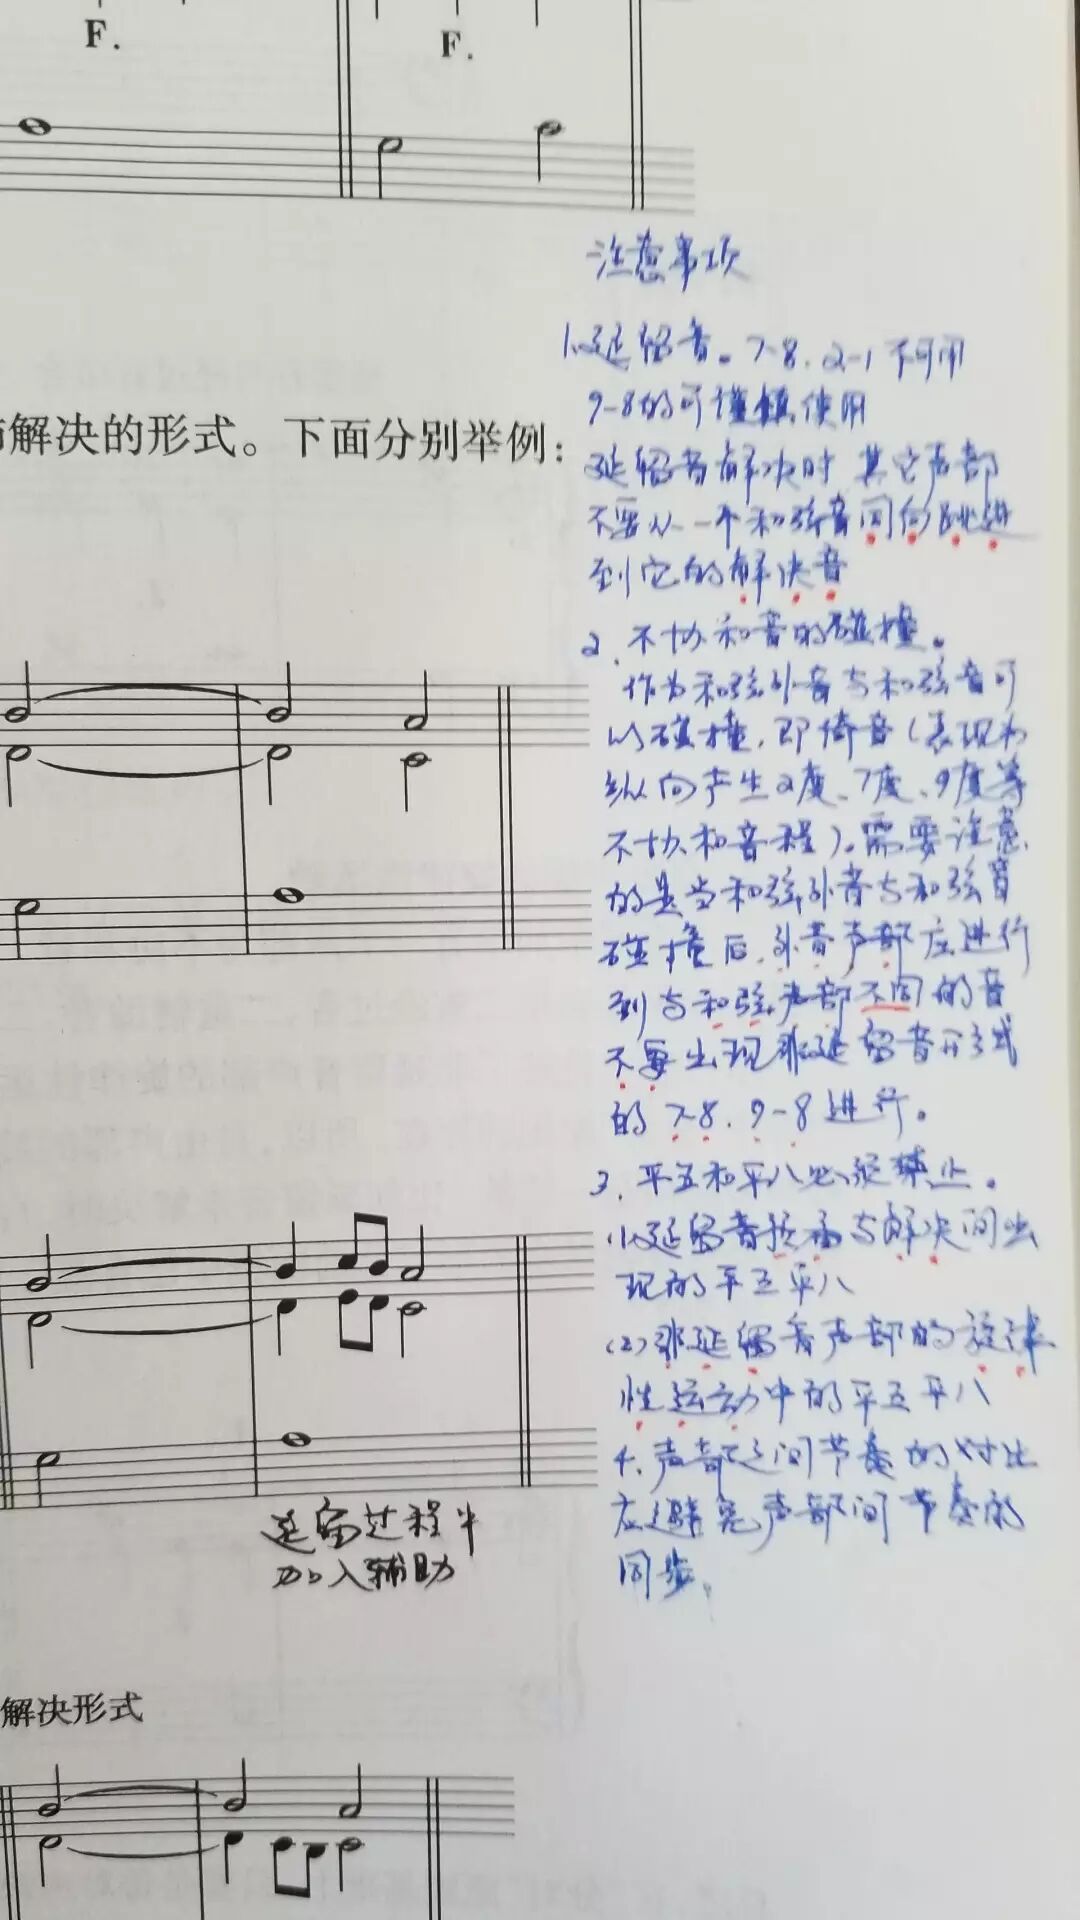 F.
F.
注意事项
1、延留音。7-8.2-1不可用
9-8的可谨慎使用
解决的形式。下面分别举例：
延留音解决时其它声部
不要从一个和弦音同向跳进
到它的解决音
2.不协和音的碰撞。
作为和弦外音与和弦音可
以碰撞，即倚音（表现为
纵向产生2度、7度、9度等
不协和音程）。需要注意
的是当和弦外音与和弦音
碰撞后，外音声部应进行
到与和弦声部不同的音
不要出现非延留音形式
的7-8.9-8进行。
3.平五和平八必须禁止。
(1)延留音预备与解决间出
现的平五平八
(2)非延留音声部的旋律
性运动中的平五平八
4.声部之间节奏的对比
应避免声部间节奏的
同步。
延留过程中
加入辅助
解决形式